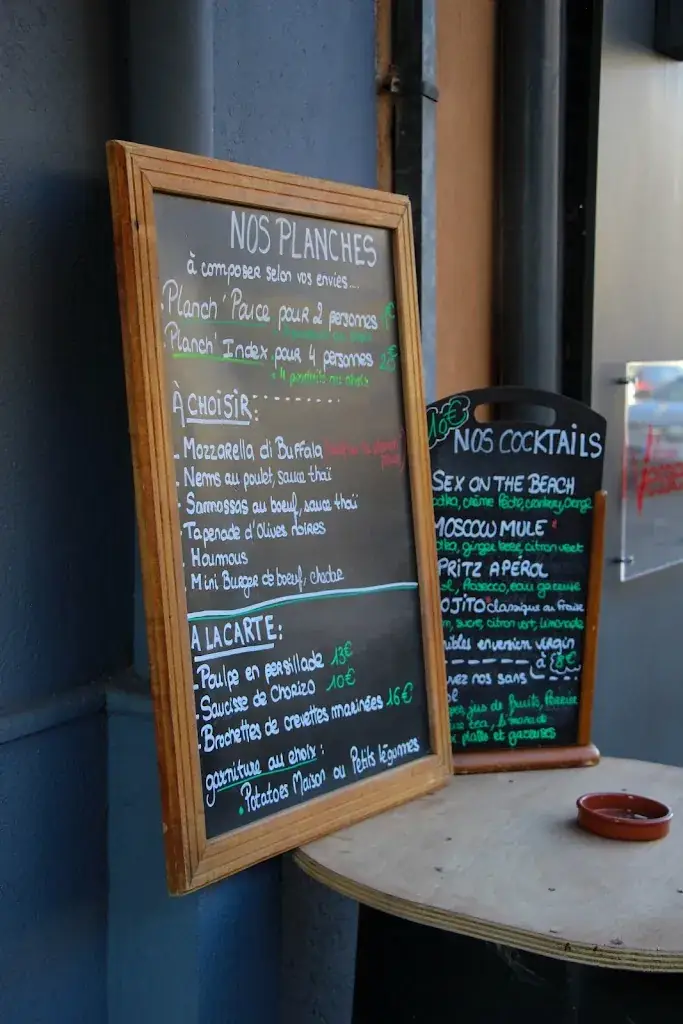 NOS PLANCHES
à composer selon vos envies...
. Planch' Pouce pour 2 personnes
. Planch' Index pour 4 personnes
4 produits au choix
À CHOISIR:
- Mozzarella di Buffala
- Nems au poulet, sauce thaï
- Samossas au boeuf, sauce thaï
- Tapenade d'Olives noires
- Houmous
- Mini Burger de boeuf, chedar
A LA CARTE:
- Poulpe en persillade 13€
- Saucisse de Chorizo 10€
- Brochettes de crevettes marinées 16€
garniture au choix:
. Potatoes Maison ou Petits légumes
10€
NOS COCKTAILS
SEX ON THE BEACH
crème pêche, cranberry, orange
MOSCOW MULE
ginger beer, citron vert
APÉROL
Prosecco, eau gazeuse
classique ou Fraise
sucre, citron vert, limonade
en version virgin
à 8€
nos sans
jus de fruits, Perrier
plates et gazeuses